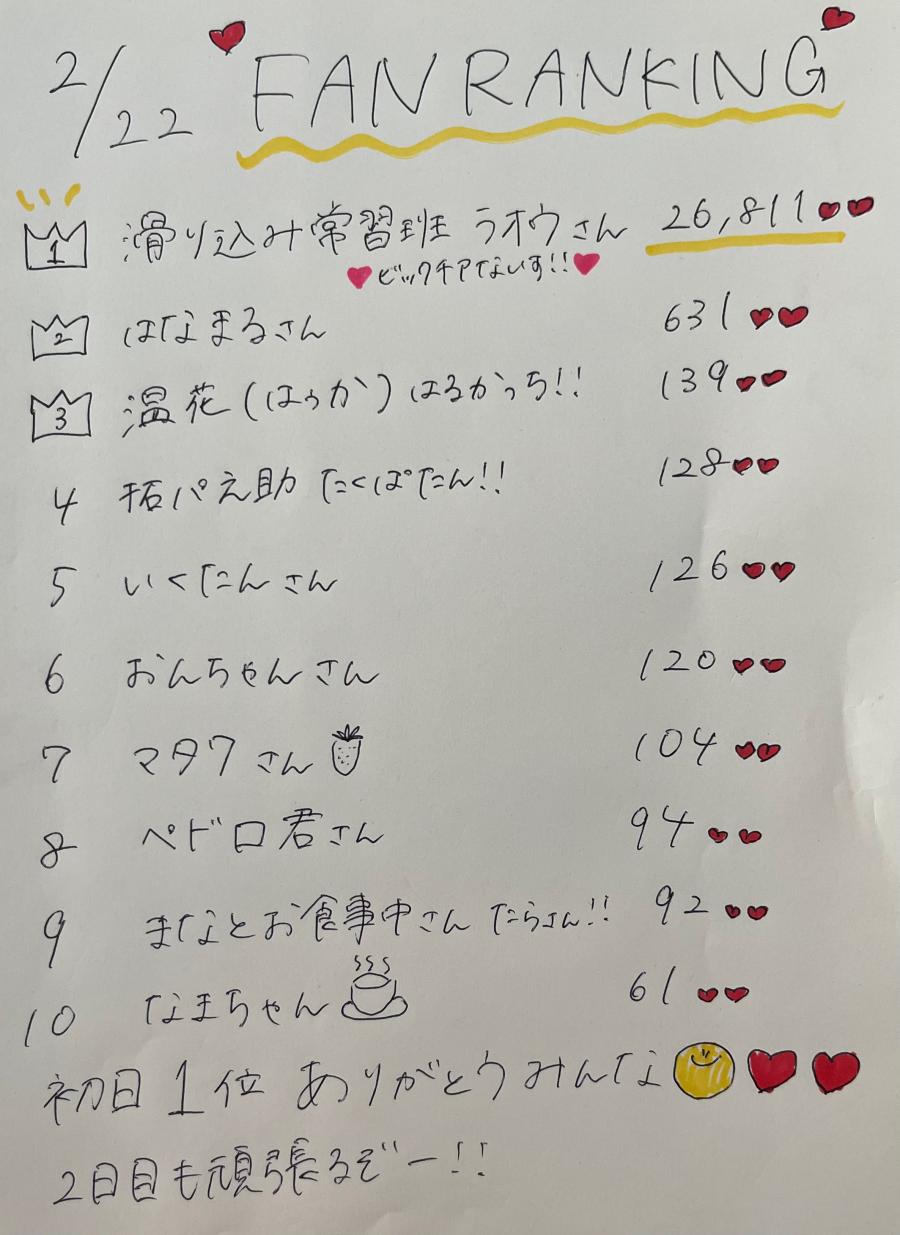 2/22 FAN RANKING
1 滑り込み常習班 ラオウさん 26,811
ビックチアないす!!
2 はなまるさん 631
3 温花(ほぅか) はるかっち!! 139
4 拓パえ助 たくぽたん!! 128
5 いくたんさん 126
6 おんちゃんさん 120
7 マタワさん 104
8 ペドロ君さん 94
9 まなとお食事中さん たらさん!! 92
10 なまちゃん 61
初日1位 ありがとうみんな
2日目も頑張るぞー!!